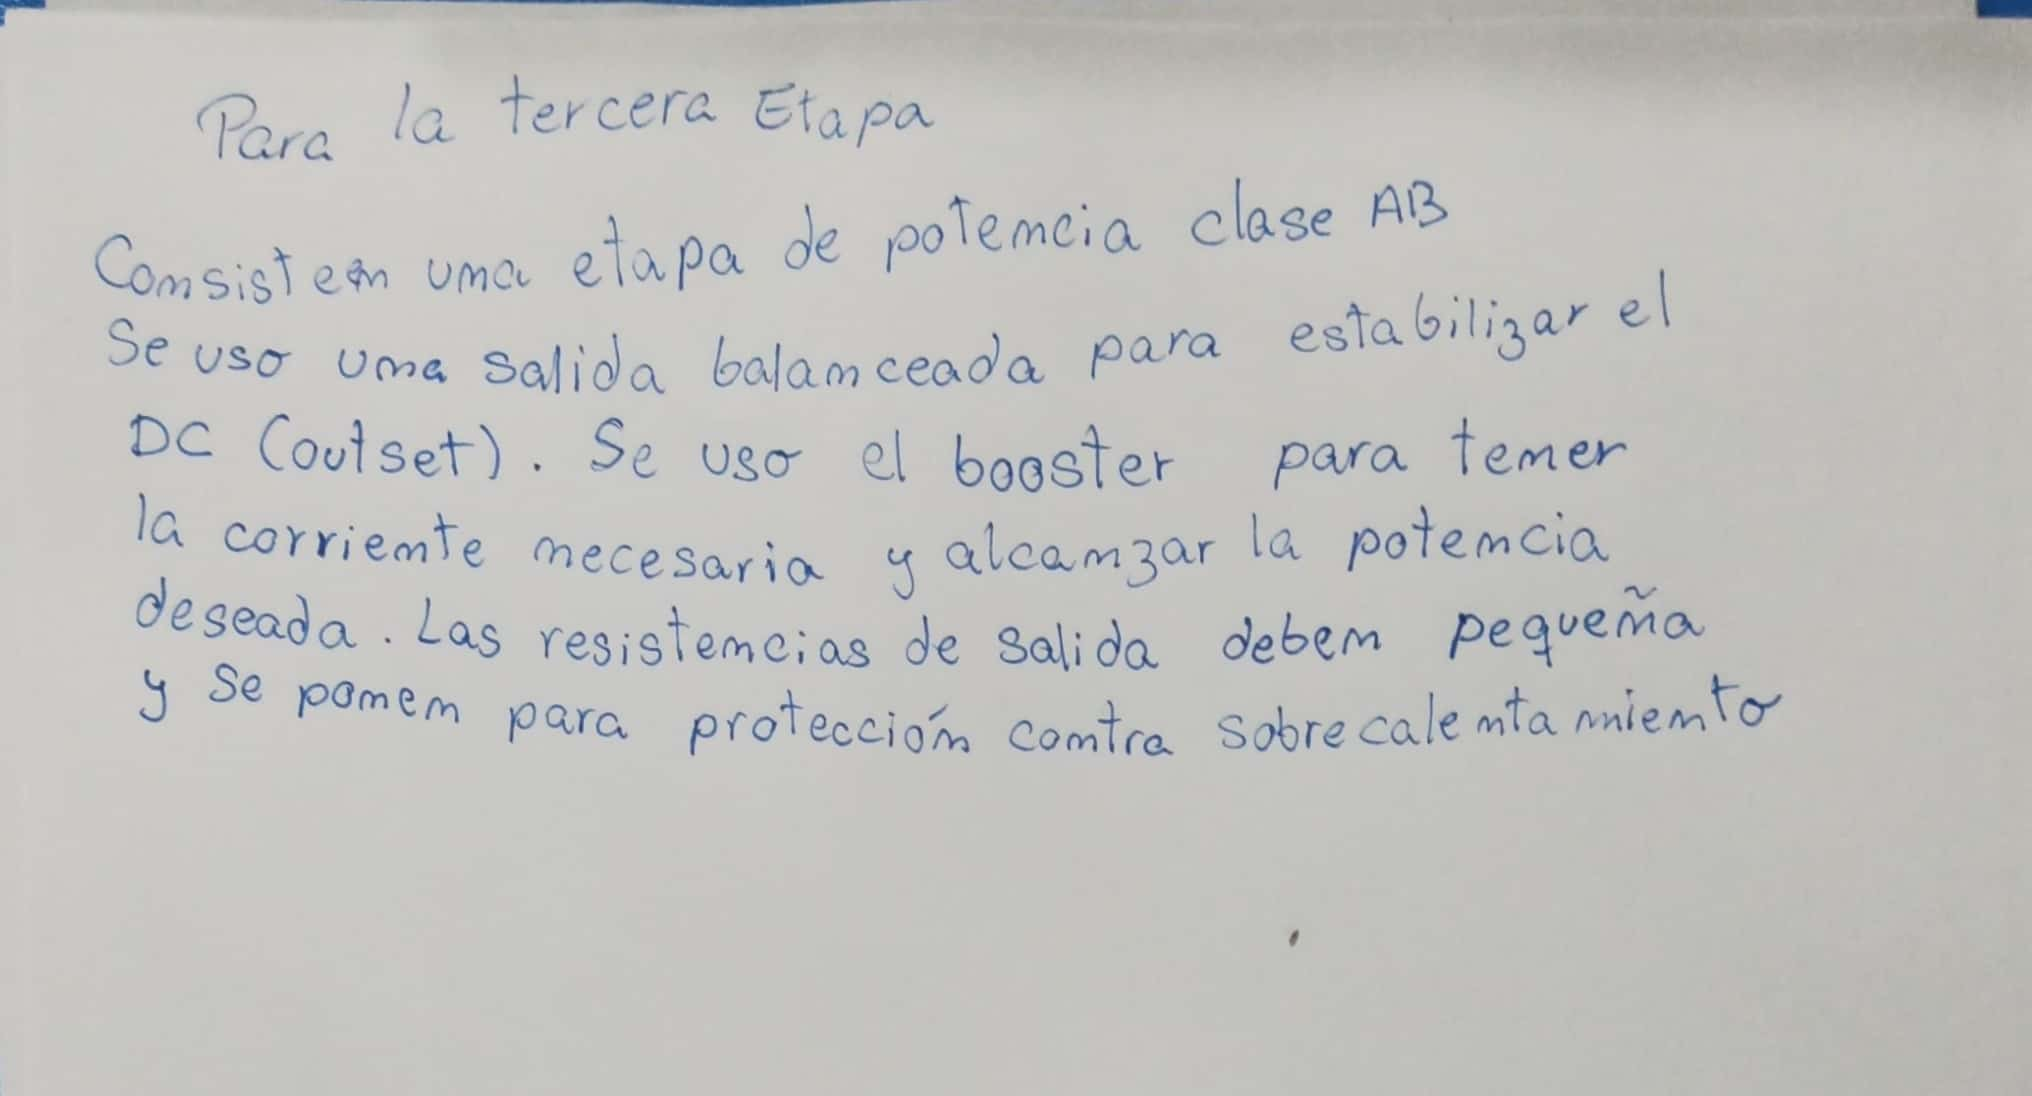 Para la tercera Etapa
Consist en una etapa de potencia clase AB
Se uso una salida balanceada para estabilizar el
DC (outset). Se uso el booster para tener
la corriente necesaria y alcanzar la potencia
deseada. Las resistencias de salida deben pequeña
y se ponen para protección contra sobrecalentamiento